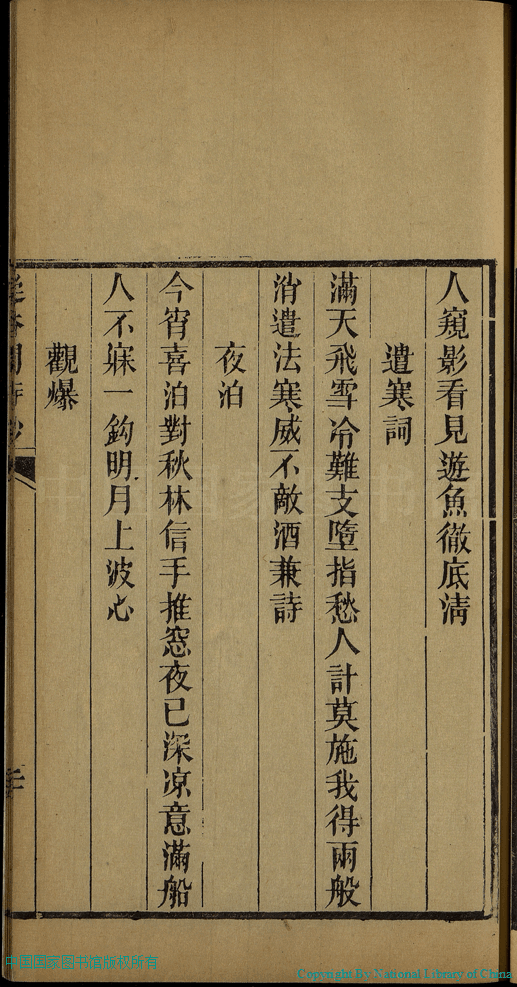 人窺影看見遊魚徹底清
遣寒詞
滿天飛雪冷難支墮指愁人計莫施我得兩般
消遣法寒威不敵酒兼詩
夜泊
今宵喜泊對秋林信手推窓夜已深凉意滿船
人不寐一鈎明月上波心
觀爆
中国国家图书馆版权所有
Copyright By National Library of China